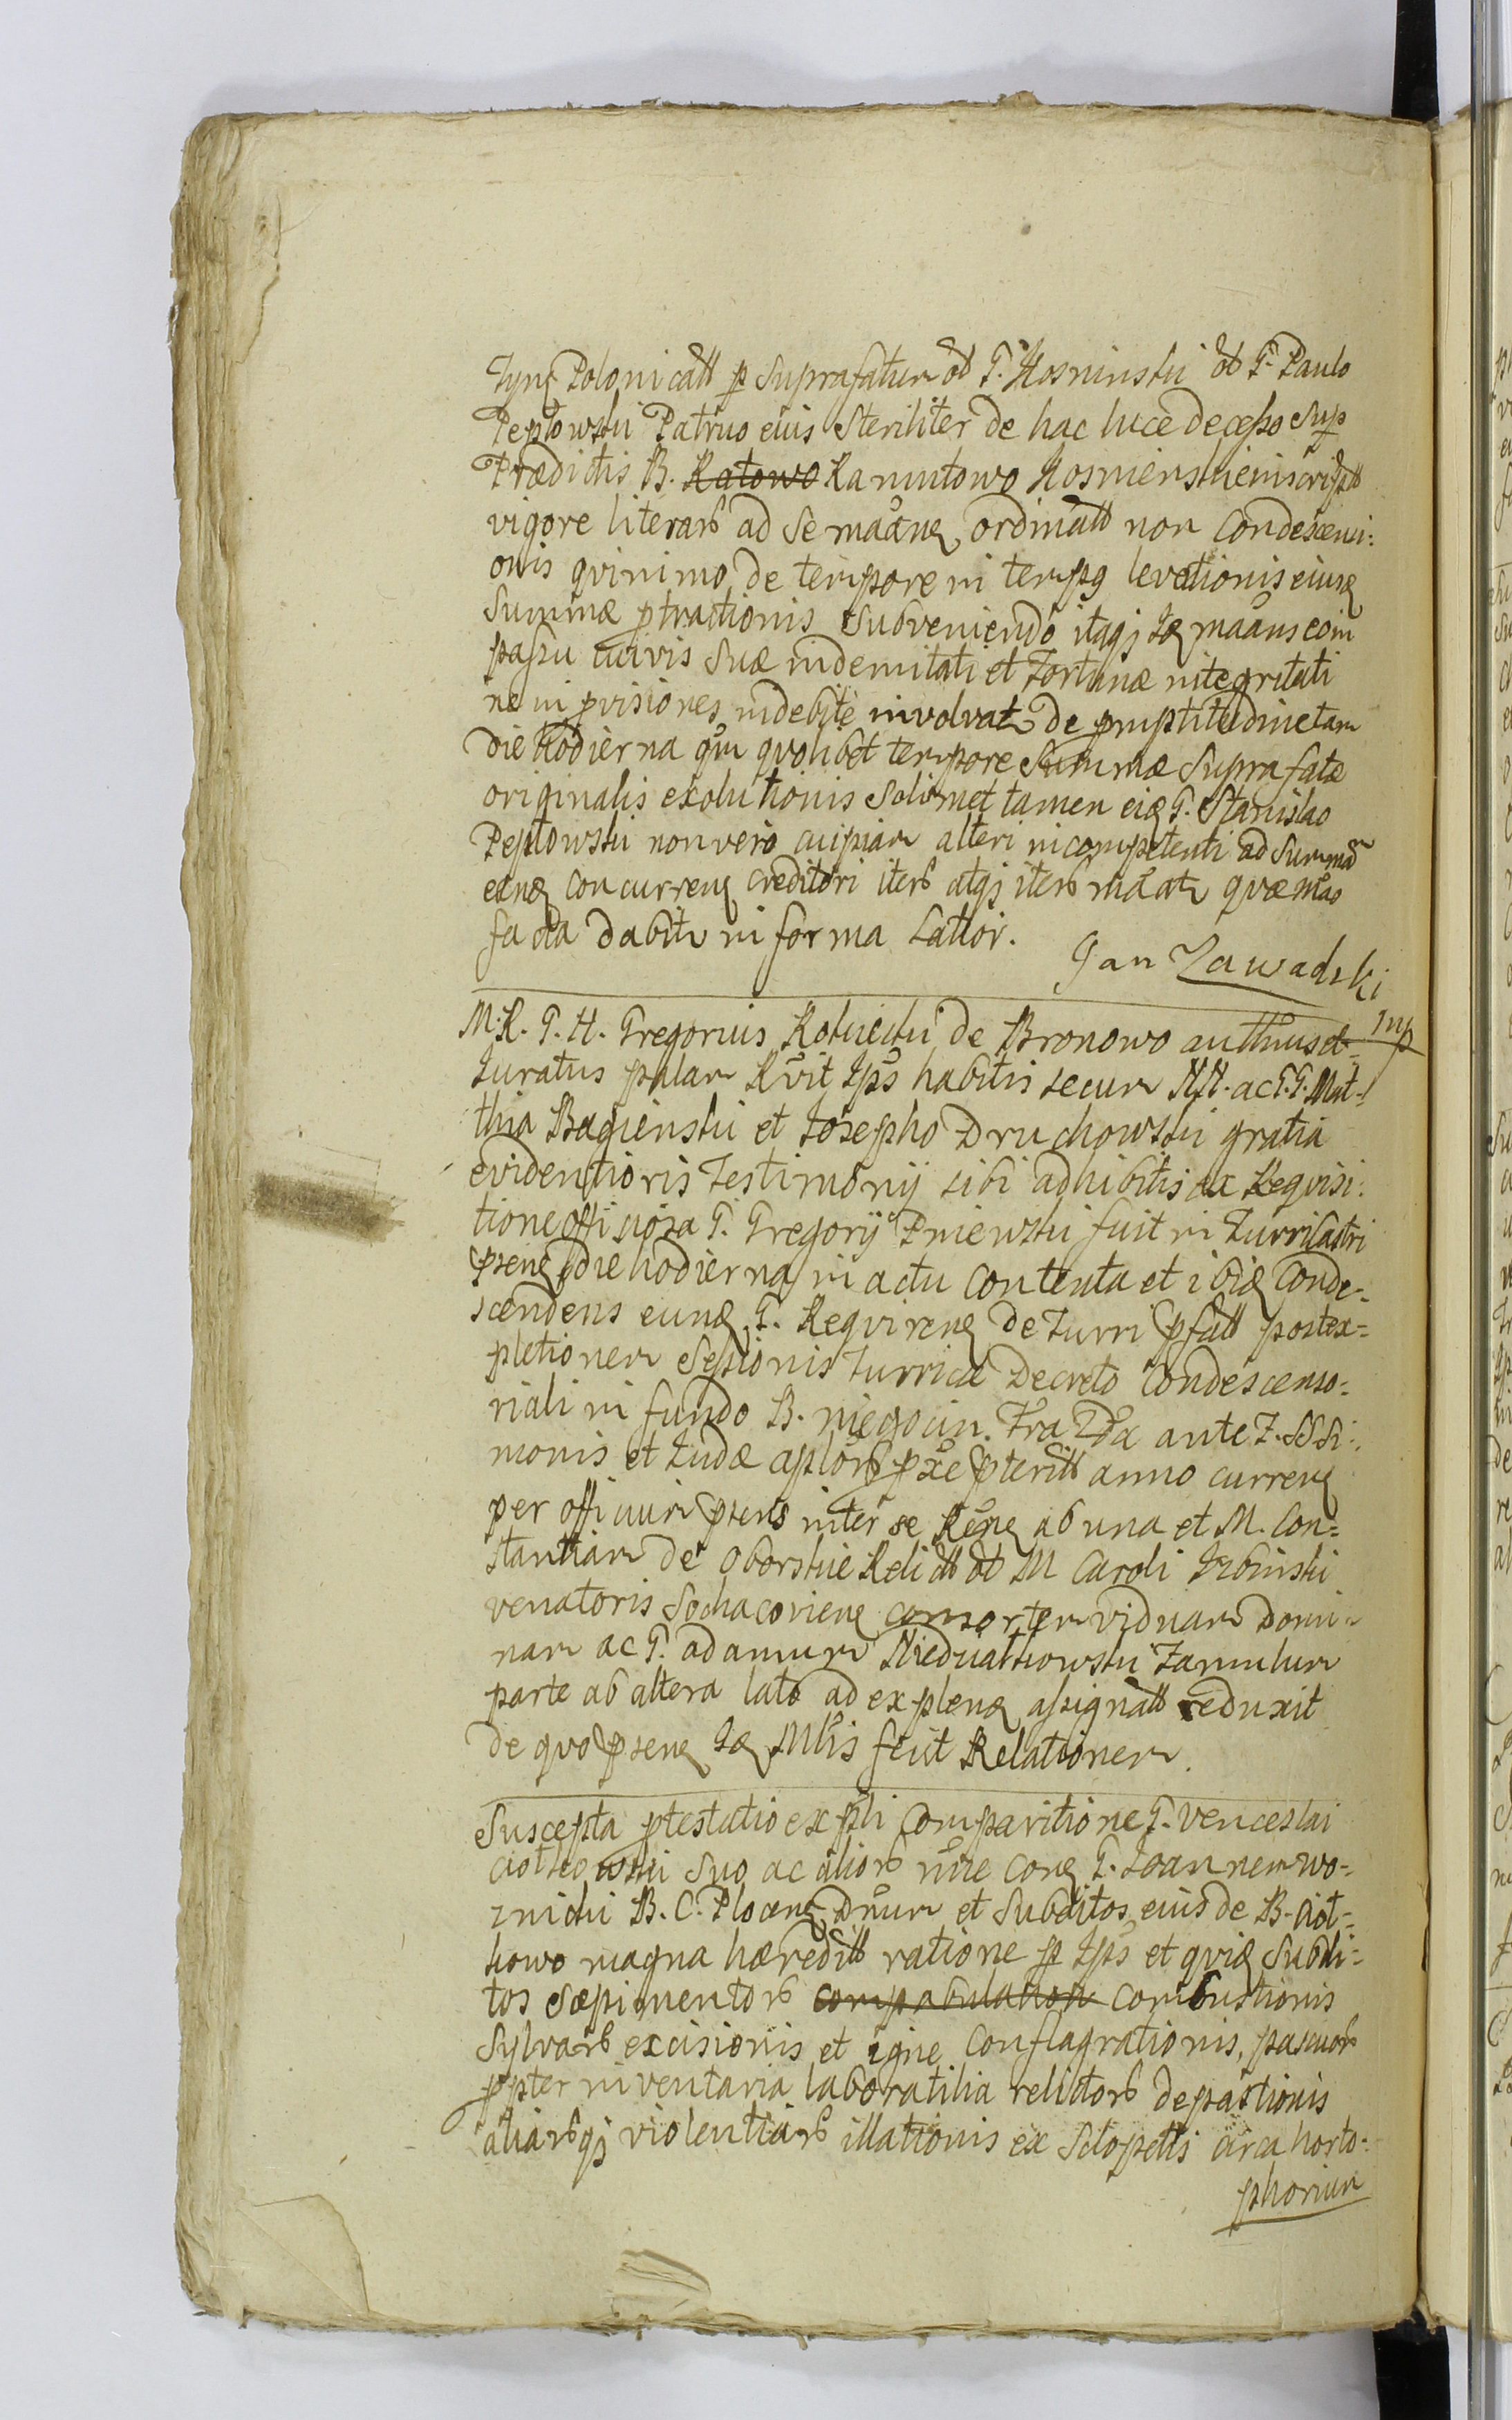 Tynf Polonicall p suprafatum ol G. Kosninski ol G. Paulo
Peplowski Patruo eius steriliter de hac luce decesso sup
Prædictis B. Ratowo Ramutowo Kosmienskie inscript
vigore literarb ad se maãnę ordinatt non condescensi:
onis quinimo de tempore in tempg levationis eiusę
Summæ ptractionis Subveniendo itaqz Ią maãns eoin
passu iuivis Suæ indemnitati et Fortunæ integritati
ne in pvisiones indebite involvat de promptitudine tam
die hodierna qm quolibet tempore Summæ Suprafatæ
originalis exolutionis Solimet tamen eią G. Stanislao
Peplowski non vero cuipiam alteri in competenti ad Summã
eanę concurrenę creditori iterb atqz iterb mãat quæ mão
facta dabitr in forma Lattor.
Jan Zawadzki
mp
M. R. G. H. Gregorius Kotuecki de Bronowo autthus et
Juratus palam Rvit Ips habitis secum NN. ac G.G. Mat-
thia Bagienski et Josepho Druchowski gratia
evidentioris Testimonij sibi adhibitis ex Requisi:
tione officiosa G. Gregorij Pniewski fuit in Turri Castri
psenę die hodierna in actu contenta et ibią Conde-
scendens eunę G. Requirenę de Turri pfatt post ex=
pletionem Sessionis Turricæ Decreto Condescenso=
riali in fundo B. niegocin. Fra 2da ante F. SS Si:
monis et Judæ aplorb pxe pteritt anno currenę
per officium psens inter se Rẽnę ab una et M. Con=
stantiam de Oborskie Relictt ol M Caroli Izbinski
venatoris Sochacovienę consortem viduam Domi-
nam ac G. adamum Niedziałkowski Famulum
parte ab altera lato ad explenę assignatt reduxit
de quo psenę Ią Mtis fecit Relationem.
Suscepta ptestatio ex psli Comparitione G. Venceslai
Ciołkowski Suo ac aliorb nõie conę G. Joannem Wo=
znicki B. C. Plocenę Dnum et Subditos eius de B. Ciot=
kowo magna hæreditt ratione p Ips et quią Subdi=
tos Sæpimentorb compabulation combustionis
Sylvarb excisionis et igne conflagrationis, pascuorb
ppter inventaria laboratilia relictorb depastionis
aliarbqz violentiarb illationis ex Sclopetis circa horto=
phorium